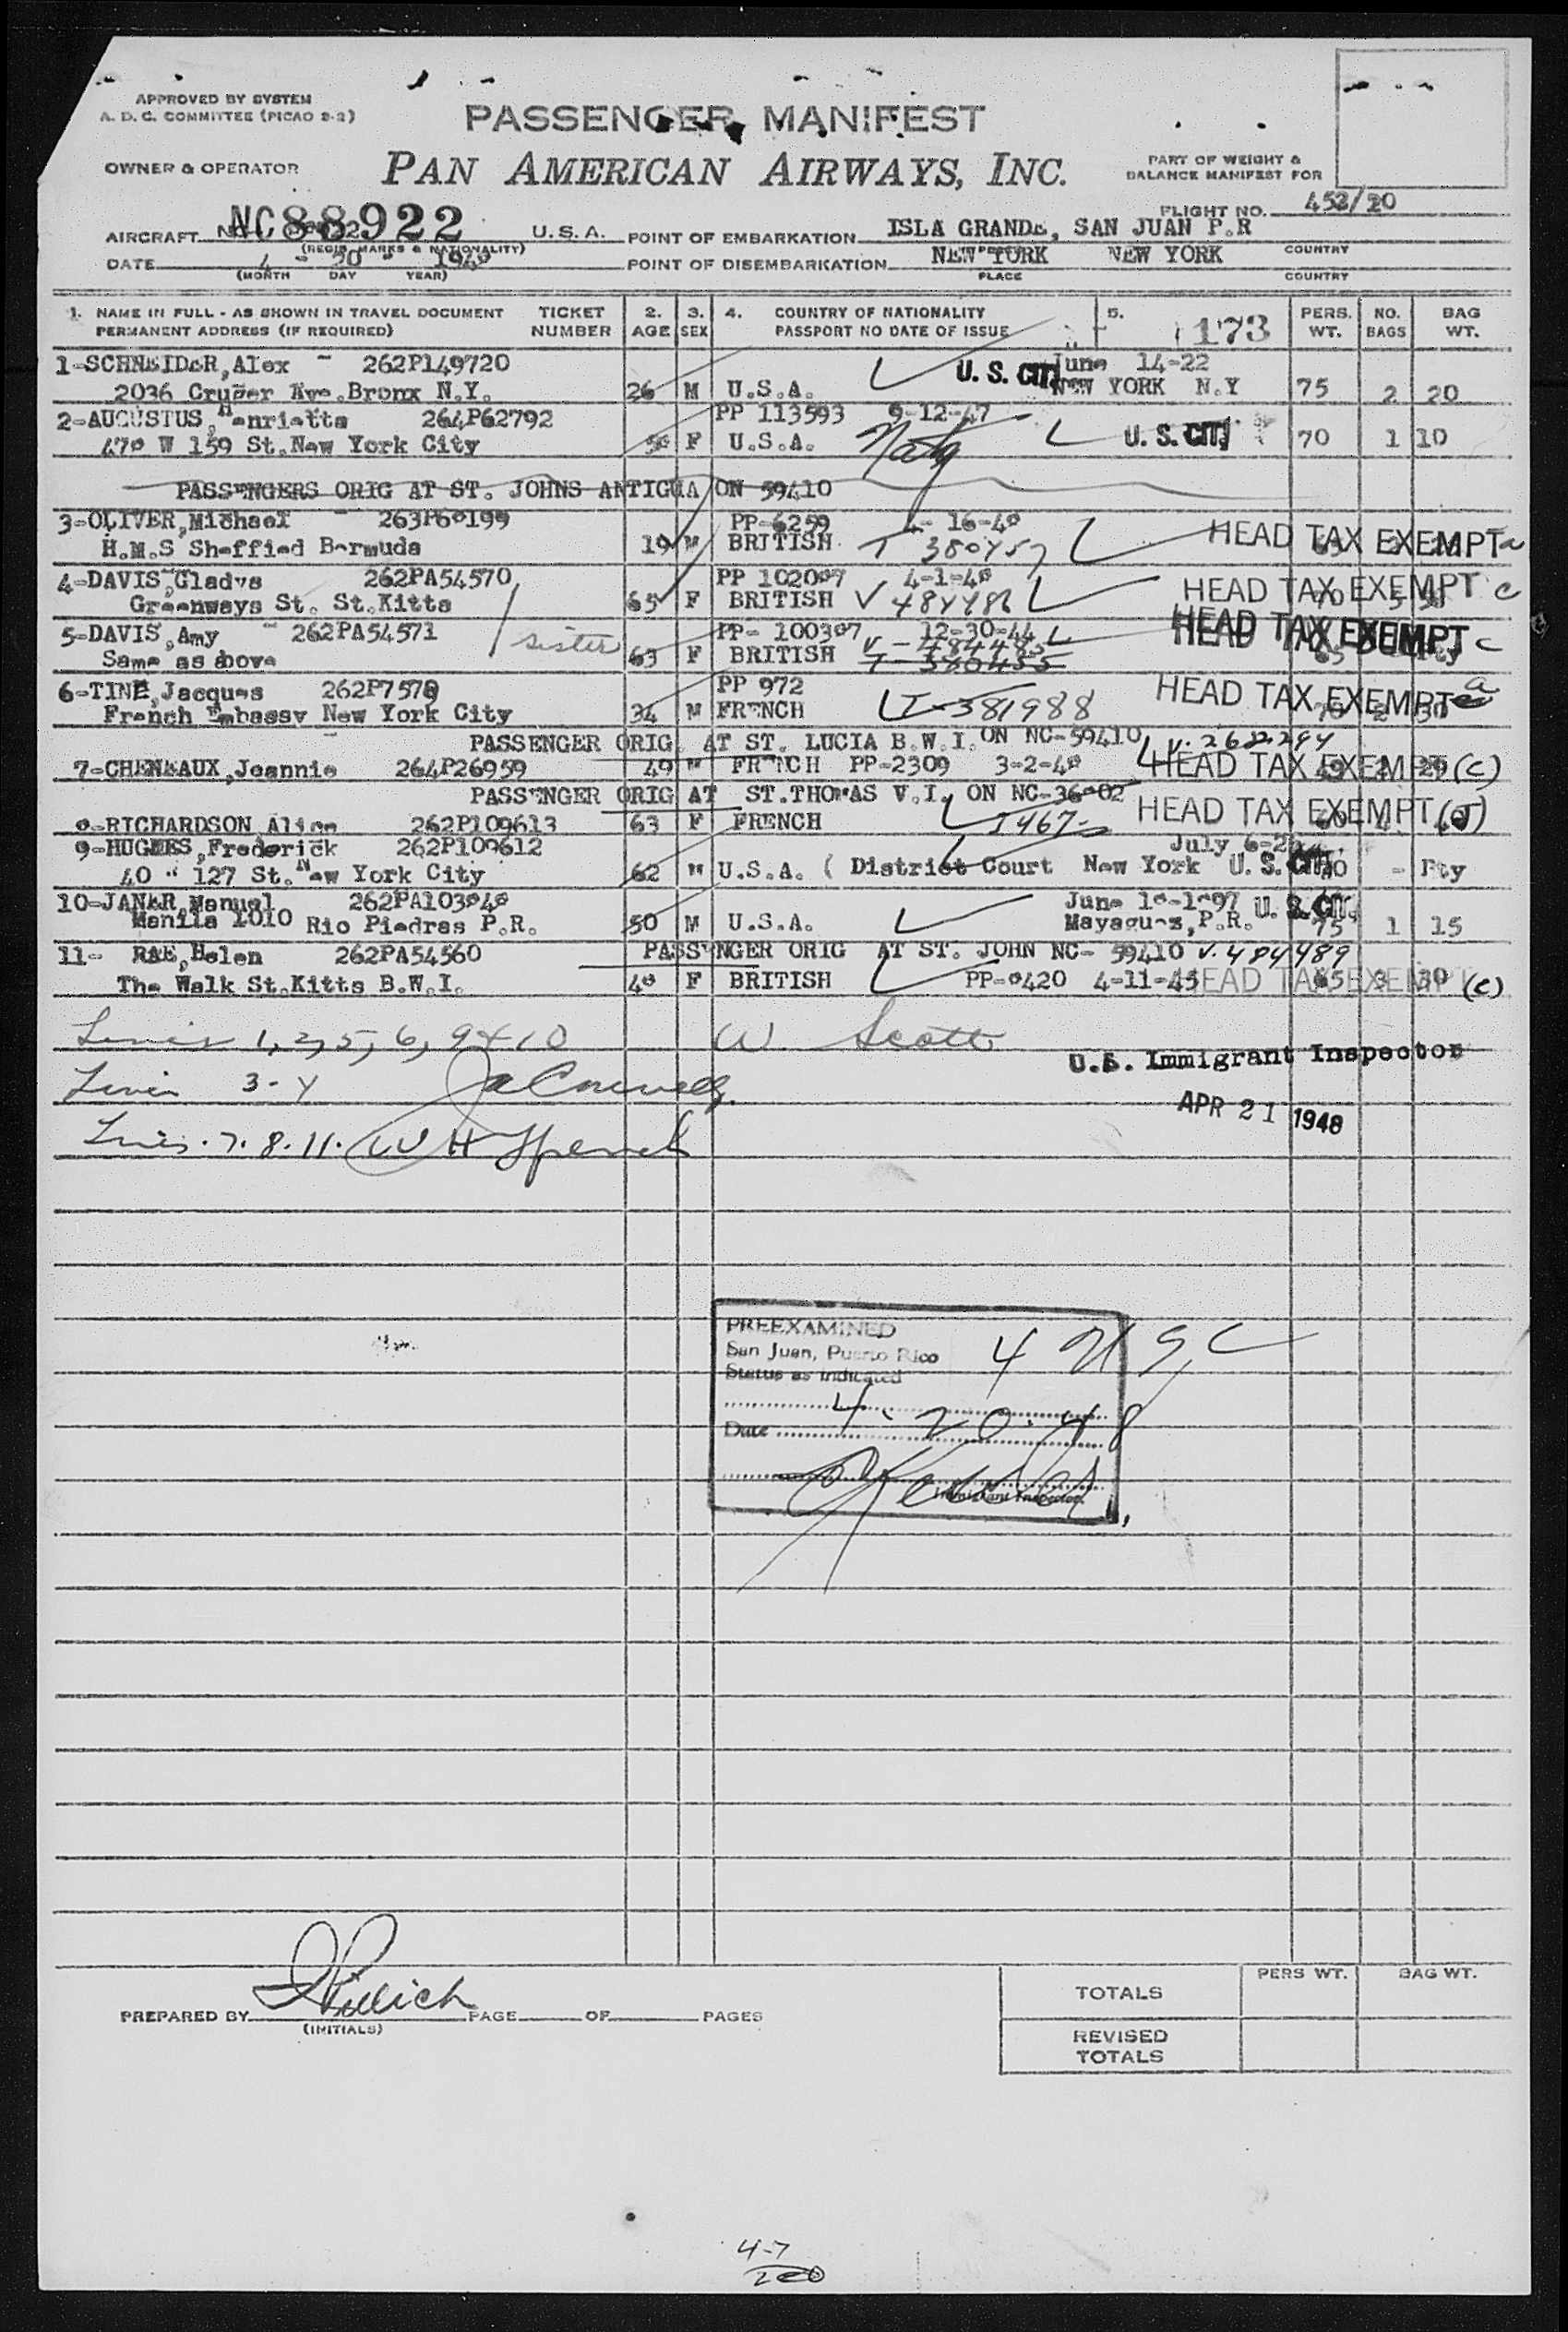 APPROVED BY SYSTEM
A. D. C. COMMITTEE (PICAO 2-2)
PASSENGER MANIFEST
OWNER & OPERATOR
PAN AMERICAN AIRWAYS, INC.
PART OF WEIGHT &
BALANCE MANIFEST FOR
FLIGHT NO. 452/20
AIRCRAFT NC88922 U.S.A.
(REGIS. MARKS & NATIONALITY)
POINT OF EMBARKATION ISLA GRANDE, SAN JUAN P.R
COUNTRY
DATE 4 - 20 -
(MONTH DAY YEAR)
POINT OF DISEMBARKATION NEW YORK NEW YORK
PLACE COUNTRY
1. NAME IN FULL - AS SHOWN IN TRAVEL DOCUMENT TICKET 2. 3. 4. COUNTRY OF NATIONALITY 5. PERS. NO. BAG
PERMANENT ADDRESS (IF REQUIRED) NUMBER AGE SEX PASSPORT NO DATE OF ISSUE 173 WT. BAGS WT.
1-SCHNEIDER,Alex 262P149720 June 14-22
2036 Cruger Ave.Bronx N.Y. 26 M U.S.A. U.S. CIT NEW YORK N.Y 75 2 20
2-AUGUSTUS, Henrietta 264P62792 PP 113593 9-12-47
470 W 159 St.New York City F U.S.A. Naty U.S. CIT 70 1 10
PASSENGERS ORIG AT ST. JOHNS ANTIGUA ON 59410
3-OLIVER,Michael 263P60199 PP-6259 4- 16-48
H.M.S Sheffied Bermuda 19 M BRITISH T 380457 HEAD TAX EXEMPT
4-DAVIS,Gladys 262PA54570 PP 102007 4-1-48
Greenways St. St.Kitts 65 F BRITISH V 484486 HEAD TAX EXEMPT c
5-DAVIS,Amy 262PA54571 sister PP- 100307 12-30-44
Same as above 63 F BRITISH V-484485 HEAD TAX EXEMPT c
T-380455
6-TINE,Jacques 262P7578 PP 972
French Embassy New York City 34 M FRENCH T-381988 HEAD TAX EXEMPT a
PASSENGER ORIG. AT ST. LUCIA B.W.I. ON NC-59410 V.262294
7-CHENEAUX,Jeannie 264P26959 49 FRENCH PP-2309 3-2-48 HEAD TAX EXEMPT (C)
PASSENGER ORIG AT ST.THOMAS V.I. ON NC-36802
8-RICHARDSON Alice 262P109613 63 F FRENCH HEAD TAX EXEMPT
9-HUGHES,Frederick 262P109612 July 6-
40 W 127 St.New York City 62 M U.S.A. ( District Court New York U.S. CIT - Pty
10-JANER,Manuel 262PA103848 June 18-1897 U.S. CIT.
Manila 1010 Rio Piedras P.R. 50 M U.S.A. Mayaguez,P.R. 75 1 15
11- RAE,Helen 262PA54560 PASSENGER ORIG AT ST. JOHN NC- 59410 V.484489
The Walk St.Kitts B.W.I. 48 F BRITISH PP-8420 4-11-45 HEAD TAX EXEMPT 65 3 30 (c)
Lines 1,2,5,6,9 & 10 W Scott
U.S. Immigrant Inspector
Lines 3-4
APR 21 1948
Lines.7.8.11.
PREEXAMINED
San Juan, Puerto Rico
Status as indicated
4 USC
4-20-48
Date
Immigrant Inspector.
PREPARED BY PAGE OF PAGES
(INITIALS)
PERS WT. BAG WT.
TOTALS
REVISED
TOTALS
4-7
200